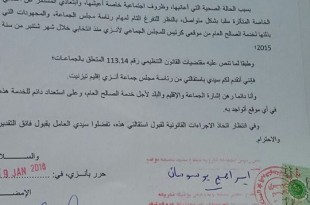 بسبب الحالة الصحية التي أعانيها، وظروف اجتماعية خاصة أعيشها، وابتعادي المستمر عن
الجماعة المذكورة سلفا بشكل متواصل، بالنظر للتفرغ التام لمهام رئاسة مجلس الجماعة، والمجهودات التي
بذلتها لخدمة الصالح العام من موقعي كرئيس للمجلس الجماعي لأنزي منذ انتخابي خلال شهر شتنبر من سنة
2015؛
وطبقا لما تنص عليه مقتضيات القانون التنظيمي رقم 113.14 المتعلق بالجماعات؛
فإني أتقدم لكم سيدي باستقالتي من رئاسة مجلس جماعة أنزي إقليم تيزنيت.
وأنا دائما رهن إشارة الجماعة والإقليم والبلاد لأجل خدمة الصالح العام، وعلى استعداد دائم للخدمة
في أي موقع أتواجد به.
وفي انتظار اتخاذ الاجراءات القانونية لقبول استقالتي هذه، تفضلوا سيدي العامل بقبول فائق التقدير
والاحترام.
والسلام
حرر بأنزي، في:
9 JAN 2018
الإمضاء
ابراهيم بوسوسان